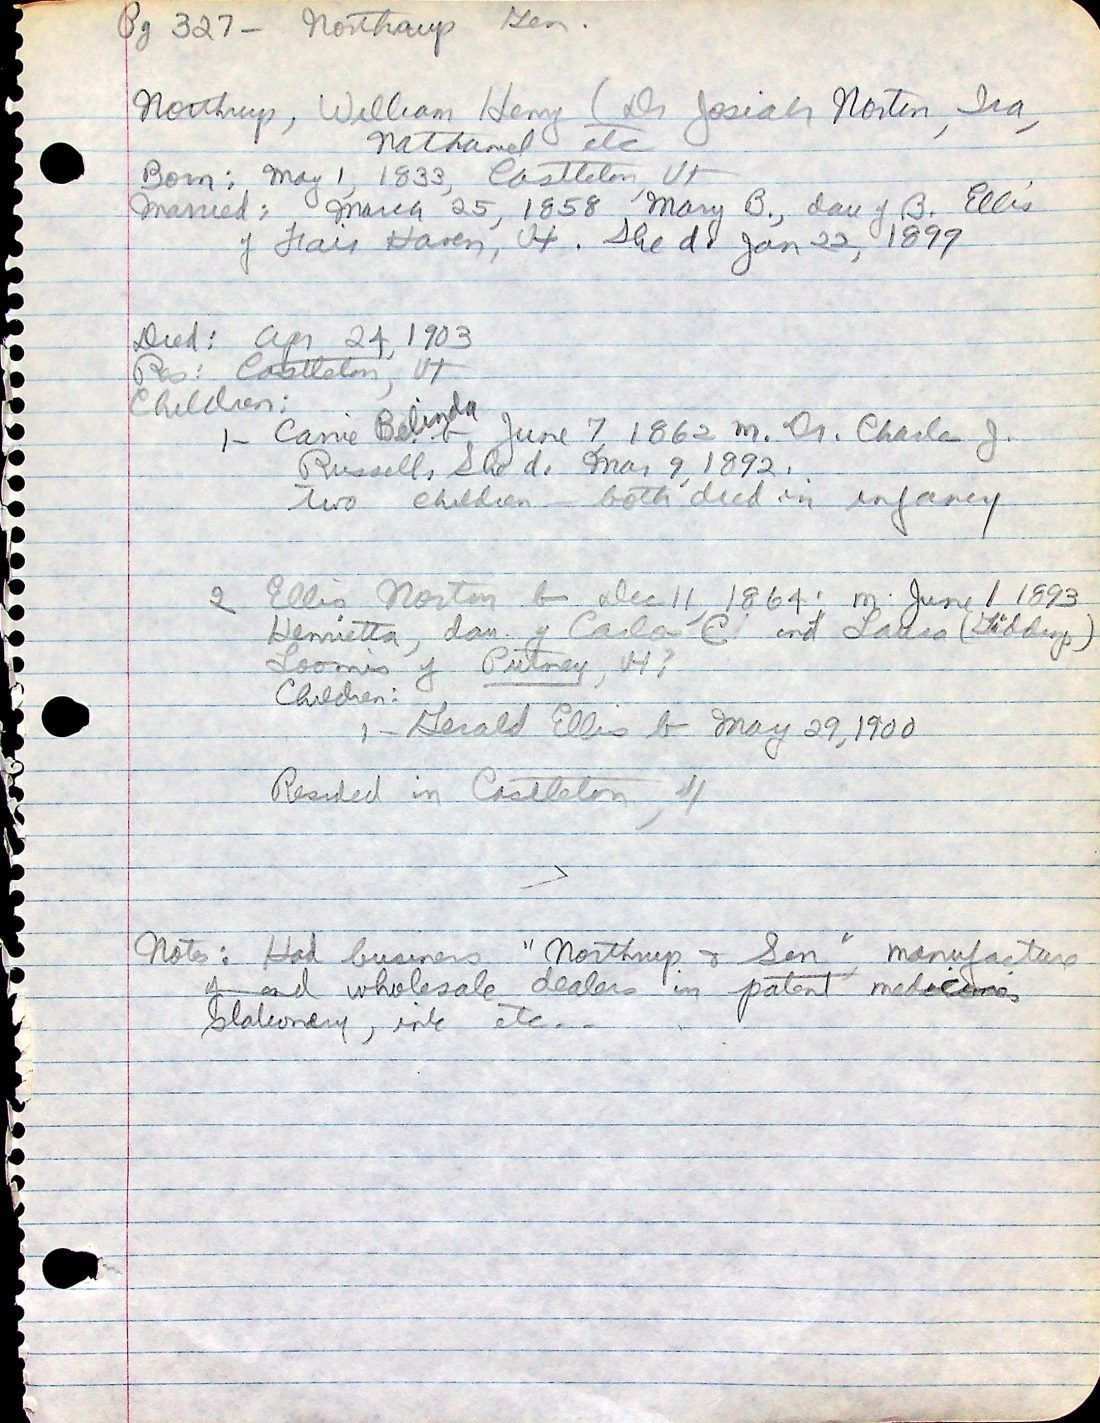 Pg 327 - Northrup Gen.
Northrup, William Henry (Dr Josiah Norton, Ira,
Nathaniel etc
Born: May 1, 1833, Castleton, Vt
Married: March 25, 1858 Mary B., dau of B. Ellis
of Fair Haven, Vt. She d. Jan 22, 1899
Died: Apr 24, 1903
Res: Castleton, Vt
Children:
1- Carrie Belinda b June 7, 1862 m. Dr. Charles J.
Russell, She d. Mar 9, 1892.
Two children - both died in infancy
2 Ellis Norton b Dec 11, 1864; m. June 1 1893
Henrietta, dau. of Carlos C. and Laura (Giddings)
Loomis of Putney, Vt?
Children:
1- Gerald Ellis b May 29, 1900
Resided in Castleton, Vt
Note: Had business "Northrup & Son" manufacture
of and wholesale dealers in patent medicines
Stationery, ink etc..